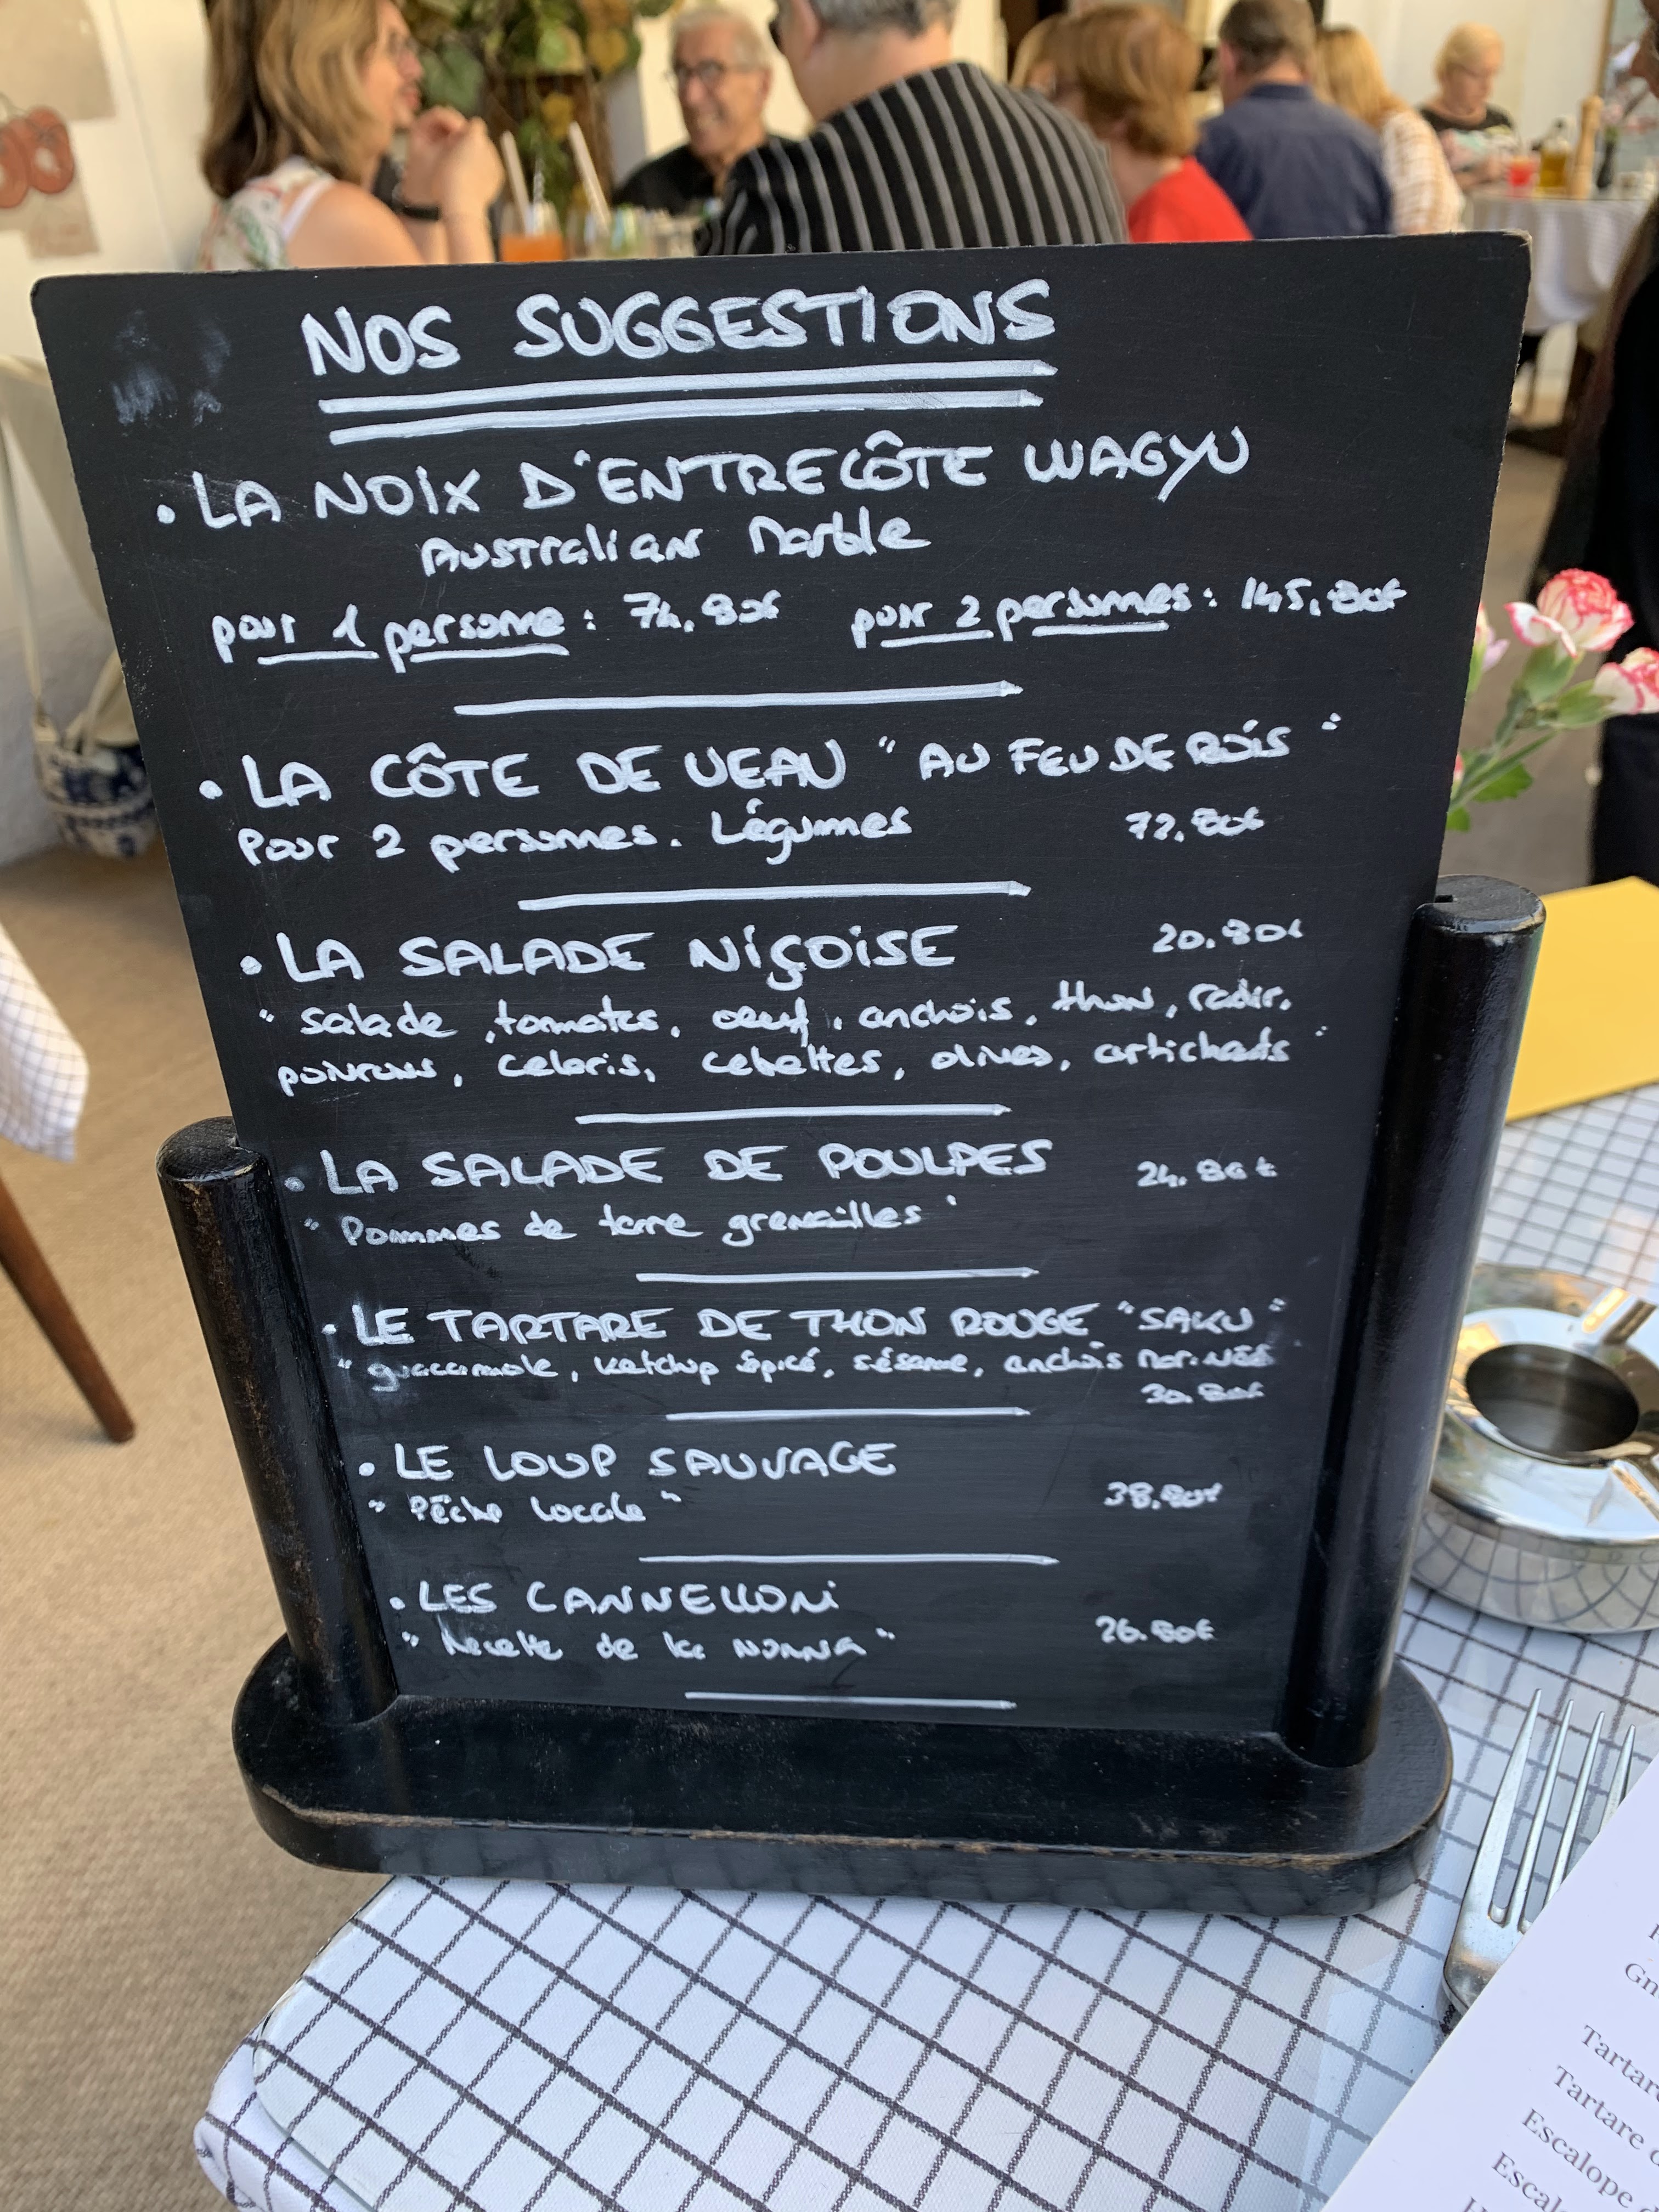 NOS SUGGESTIONS
• LA NOIX D'ENTRECÔTE WAGYU
AUSTRALIAN Marble
pour 1 personne : 74,80€ pour 2 personnes : 145,80€
• LA CÔTE DE VEAU "AU FEU DE BOIS"
Pour 2 personnes. Légumes 72,80€
• LA SALADE NIÇOISE 20.80€
"Salade, tomates, oeuf, anchois, thon, radis,
poivrons, celeris, cebettes, olives, artichauts"
• LA SALADE DE POULPES 24.80€
"Pommes de terre grenailles"
• LE TARTARE DE THON ROUGE "SAKU"
"guacamole, ketchup épicé, sésame, anchois marinés
30.80€
• LE LOUP SAUVAGE
"Pêche locale" 38,80€
• LES CANNELLONI
"Recette de la NONNA" 26.80€
Gn
Tartare
Tartare
Escalope d
Escal